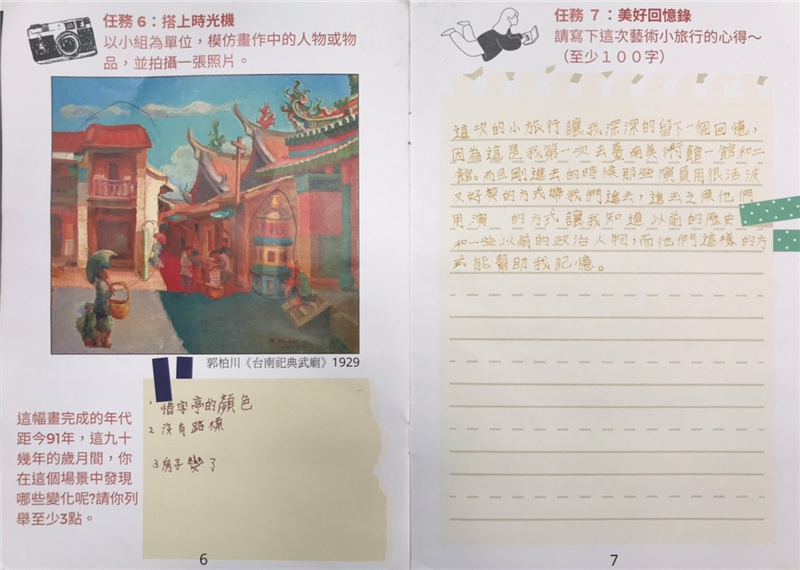 任務 6：搭上時光機
以小組為單位，模仿畫作中的人物或物
品，並拍攝一張照片。
郭柏川《台南祀典武廟》1929
這幅畫完成的年代
距今91年，這九十
幾年的歲月間，你
在這個場景中發現
哪些變化呢?請你列
舉至少3點。
1 惜字亭的顏色
2 沒有路標
3 房子變了
6
任務 7：美好回憶錄
請寫下這次藝術小旅行的心得～
（至少１００字）
這次的小旅行讓我深深的留下一個回憶，
因為這是我第一次去臺南美術館一館和二
館。而且剛進去的時候那些演員用很活波
又好笑的方式帶我們進去，進去之後他們
用演 的方式讓我知道以前的歷史
和一些以前的政治人物，而他們這樣的方
式能幫助我記憶。
7